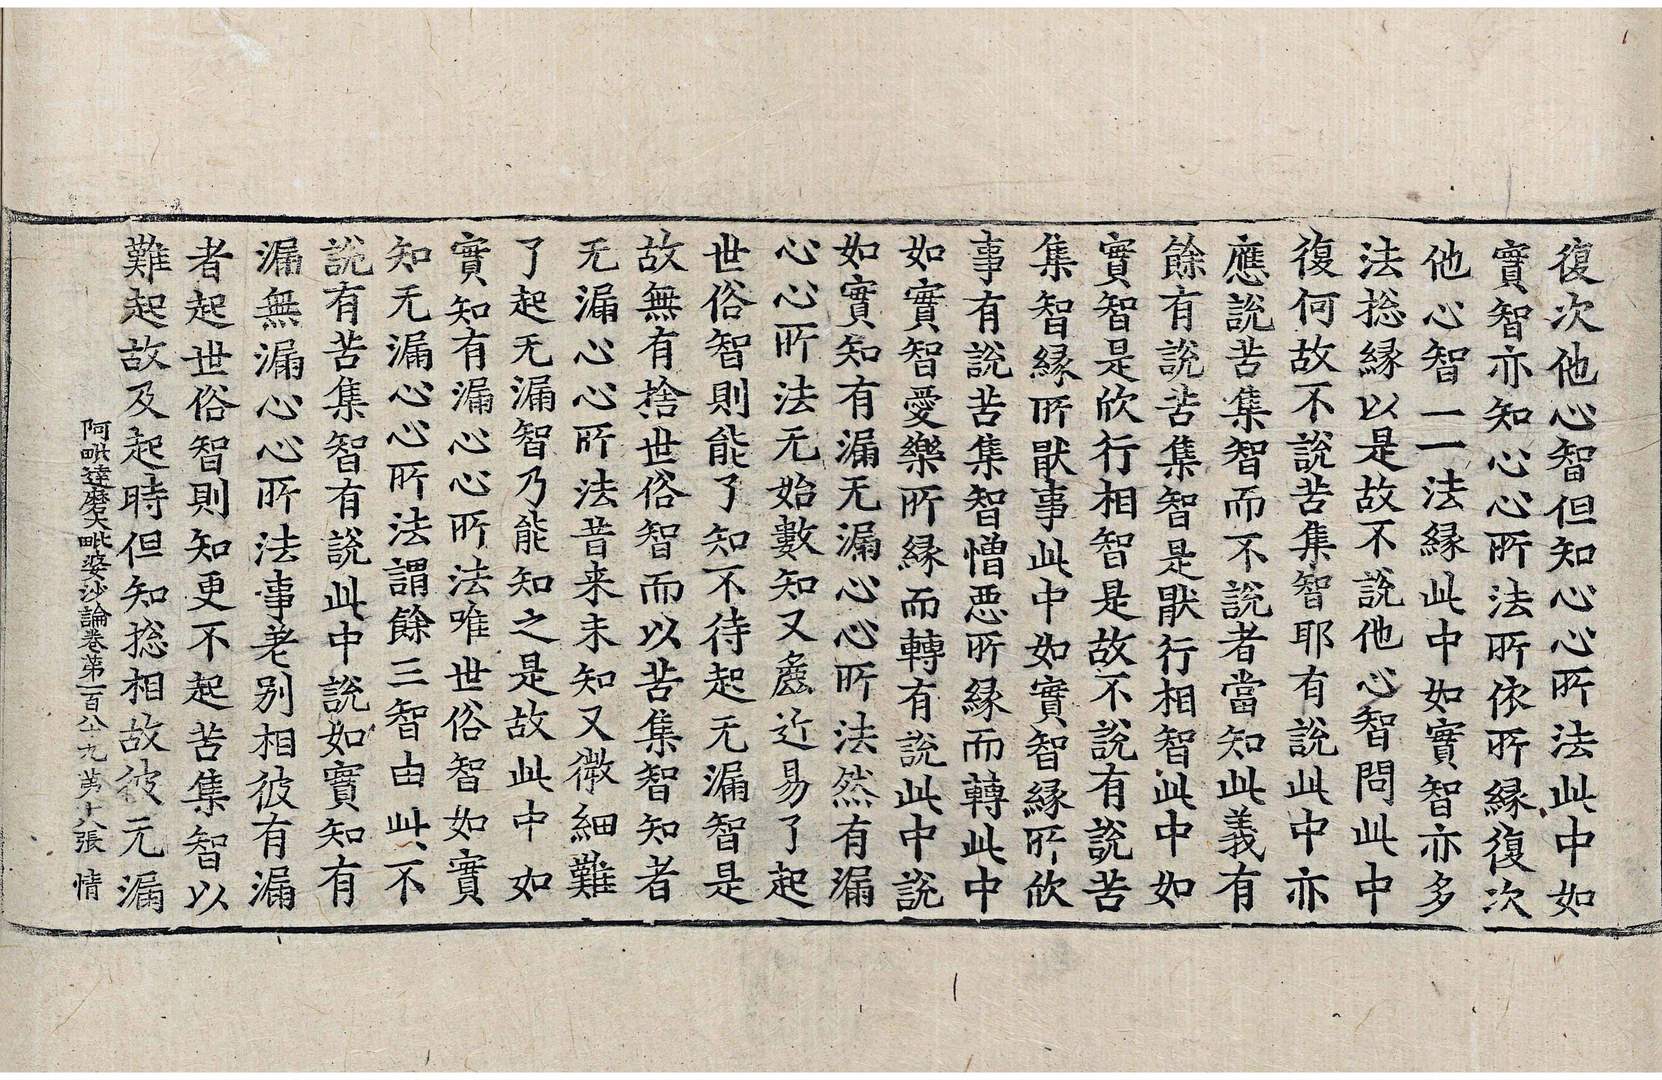 復次他心智但知心心所法此中如
實智亦知心心所法所依所縁復次
他心智一一法縁此中如實智亦多
法捴縁以是故不說他心智問此中
復何故不說苦集智耶有說此中亦
應說苦集智而不說者當知此義有
餘有說苦集智是猒行相智此中如
實智是欣行相智是故不說有說苦
集智縁所猒事此中如實智縁所欣
事有說苦集智憎惡所縁而轉此中
如實智愛樂所縁而轉有說此中說
如實知有漏无漏心心所法然有漏
心心所法无始數知又麁近易了起
世俗智則能了知不待起无漏智是
故無有捨世俗智而以苦集智知者
无漏心心所法昔来未知又微細難
了起无漏智乃能知之是故此中如
實知有漏心心所法唯世俗智如實
知无漏心心所法謂餘三智由此不
說有苦集智有說此中說如實知有
漏無漏心心所法事老别相彼有漏
者起世俗智則知更不起苦集智以
難起故及起時但知捴相故彼无漏
阿毗達磨大毗婆沙論卷第一百八十九 第十八張 情